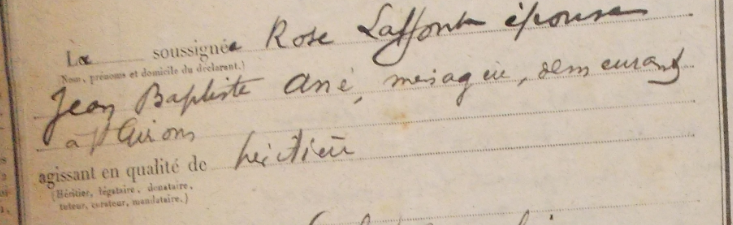 La soussignée Rose Laffont épouse
(Nom, prénoms et domicile du déclarant.)
Jean Baptiste Ané, ménagère, demeurant
à St Girons
agissant en qualité de héritière
(Héritier, légataire, donataire,
tuteur, curateur, mandataire.)